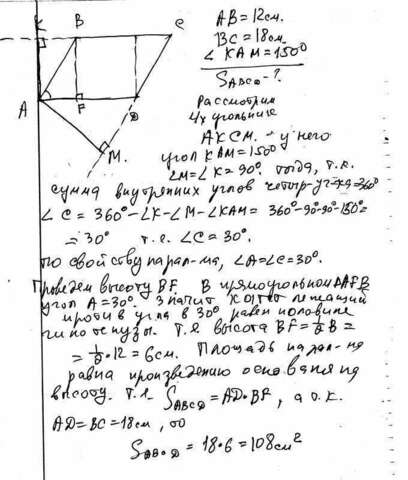 K B C
A F D
M.
AB = 12см.
BC = 18см.
∠ KAM = 150°
S ABCD - ?
Рассмотрим
4х угольник
AKCM. - у него
угол KAM = 150°
∠M = ∠K = 90°. тогда, т.к.
сумма внутренних углов четыр-уг-ка = 360°
∠C = 360° - ∠K - ∠M - ∠KAM = 360° - 90° - 90° - 150° =
= 30° т.е. ∠C = 30°.
по свойству парал-ма, ∠A = ∠C = 30°.
Проведем высоту BF. В прямоугольном ΔAFB
угол A = 30°. Значит катет лежащий
против угла в 30° равен половине
гипотенузы. Т.е высота BF = ½ B =
= ½ · 12 = 6см. Площадь парал-ма
равна произведению основания на
высоту. т.е. S ABCD = AD · BF, а т.к.
AD = BC = 18см, то
S ABCD = 18 · 6 = 108 см²